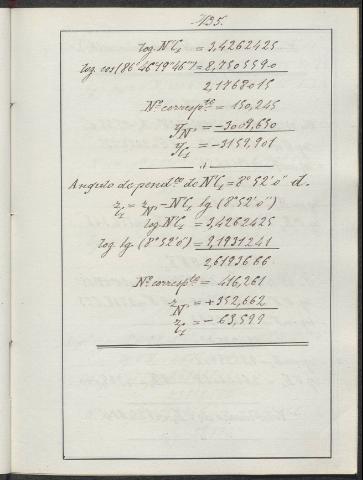 135.
log. N'C₁ = 3,4262425
log. cos(86°46'19"46‴) = 8,7505590
2,1768015
Nº corresp.te = 150,245
y N' = -3009,650
y C₁ = -3159,901
Angulo de pend.ca de N'C₁ = 8°52'0" d.
z₁ = z N' - N'C₁ tg (8°52'0")
log N'C₁ = 3,4262425
log. tg. (8°52'0") = 9,1931241
2,6193666
Nº corresp.te = 416,261
z N' = +352,662
z C₁ = -63,599